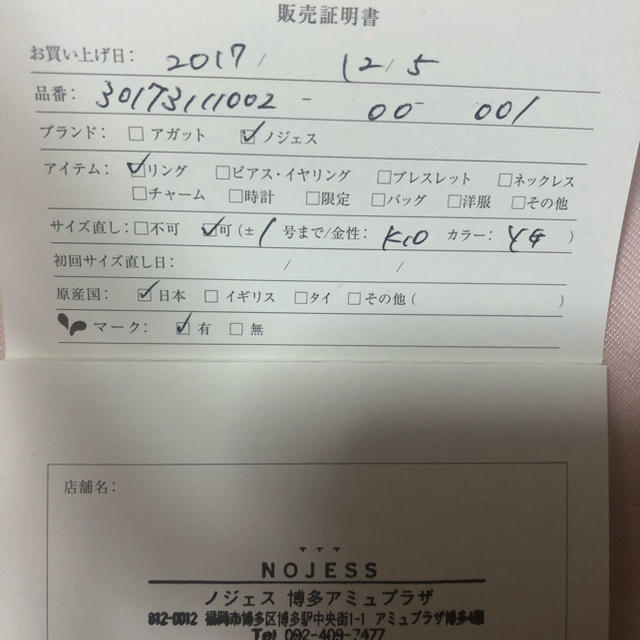 販売証明書
お買い上げ日: 2017 / 12 / 5
品番: 30173111002 - 00- 001
ブランド: □ アガット ☑ ノジェス
アイテム: ☑リング □ピアス・イヤリング □ブレスレット □ネックレス
□チャーム □時計 □限定 □バッグ □洋服 □その他
サイズ直し: □不可 ☑可 (± 1 号まで/金性: K10 カラー: YG )
初回サイズ直し日: / /
原産国: ☑日本 □ イギリス □タイ □その他 ( )
マーク: ☑ 有 □ 無
店舗名:
NOJESS
ノジェス 博多アミュプラザ
812-0012 福岡市博多区博多駅中央街1-1 アミュプラザ博多4階
Tel 092-409-7477